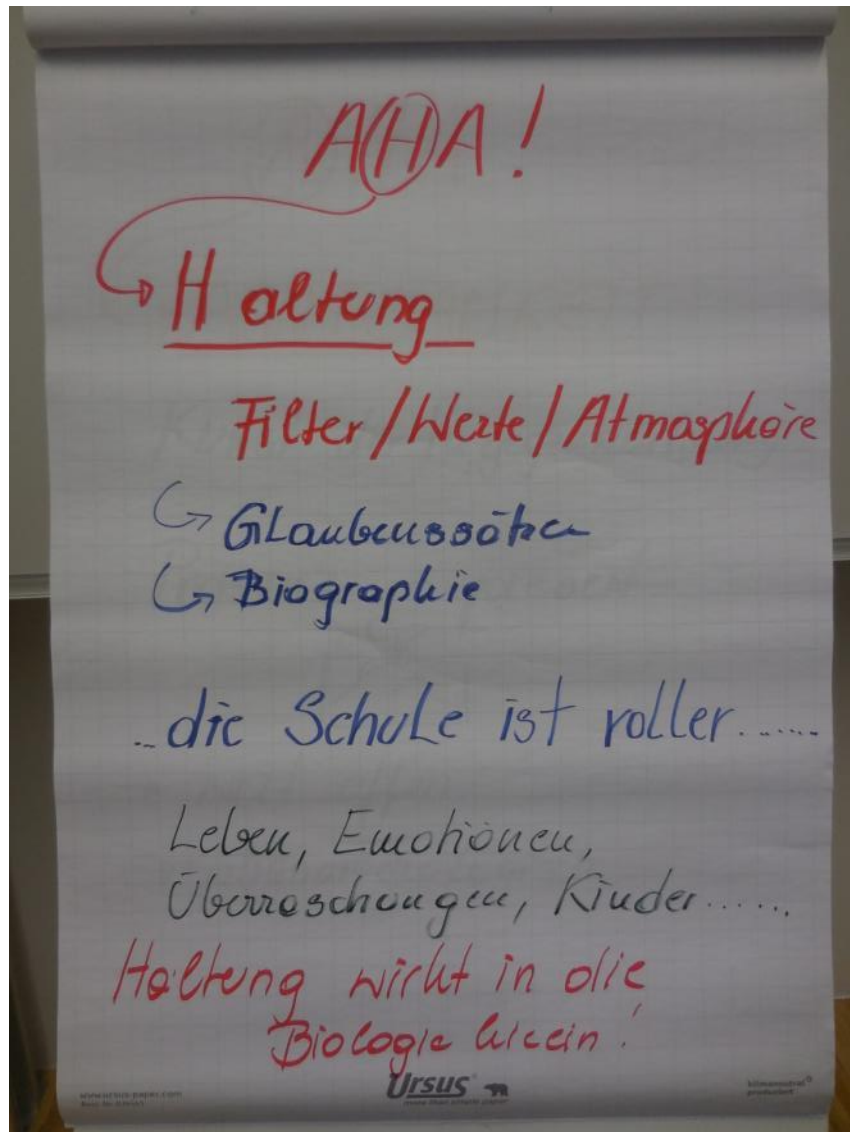 AHA!
Haltung
Filter/Werte/Atmosphäre
Glaubenssätze
Biographie
..die Schule ist voller.......
Leben, Emotionen,
Überraschungen, Kinder......
Haltung wirkt in die
Biologie hinein!
Ursus
more than simple paper
www.ursus-paper.com
klimaneutral
produziert